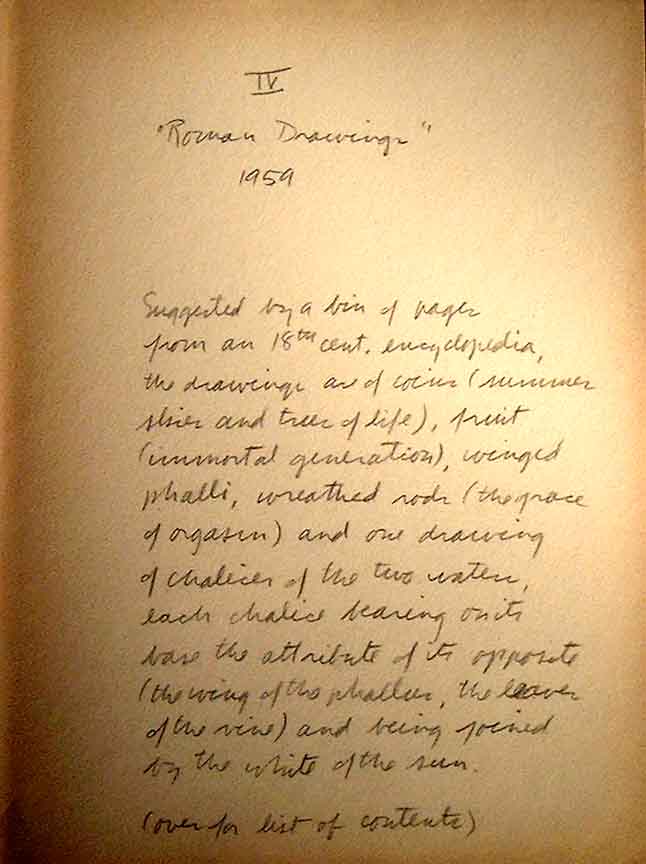 IV
"Roman Drawings"
1959
Suggested by a bin of pages
from an 18th cent. encyclopedia,
the drawings are of coins (summer
skies and trees of life), fruit
(immortal generation), winged
phalli, wreathed rods (the grace
of orgasm) and one drawing
of chalices of the two waters,
each chalice bearing on its
base the attribute of its opposite
(the wing of the phallus, the leaves
of the vine) and being joined
by the white of the sun.
(over for list of contents)